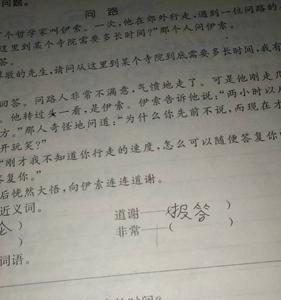 问题。
问 路
个哲学家叫伊索。一次,他在郊外行走,遇到一位问路的
从这里到某个寺院需要多长时间?”那个人问伊索。
答。
尊敬的先生,请问从这里到某个寺院到底需要多长时间,我有
回答。问路人非常不满意,气愤地走了。可是他刚走几
。他转过头一看,是伊索。伊索告诉他说:“两小时以
方。”那人奇怪地问道:“为什么你先前不说,而现在才
开玩笑?”
“刚才我不知道你行走的速度,怎么可以随便答复你
答复你。”
后恍然大悟,向伊索连连道谢。
近义词。
) 道谢——报答
) 非常——( )
词语。